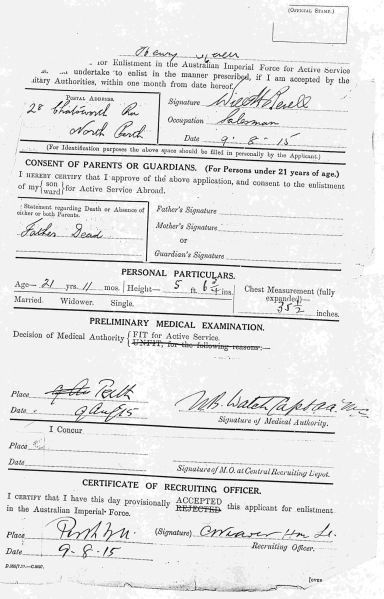 (OFFICIAL STAMP.)
Henry
for Enlistment in the Australian Imperial Force for Active Service
undertake to enlist in the manner prescribed, if I am accepted by the
itary Authorities, within one month from date hereof.
POSTAL ADDRESS.
28 Chatsworth Rd
North Perth
Signature
Occupation Salesman
Date 9. 8. 15
(For Identification purposes the above space should be filled in personally by the Applicant.)
CONSENT OF PARENTS OR GUARDIANS. (For Persons under 21 years of age.)
I HEREBY CERTIFY that I approve of the above application, and consent to the enlistment
of my {son ward} for Active Service Abroad.
Statement regarding Death or Absence of either or both Parents.
Father Dead
Father's Signature
Mother's Signature
or
Guardian's Signature
PERSONAL PARTICULARS.
Age—21 yrs. 11 mos. Height— 5 ft. 6 3/4 ins. Chest Measurement (fully expanded)— 35 1/2 inches.
Married. Widower. Single.
PRELIMINARY MEDICAL EXAMINATION.
Decision of Medical Authority {FIT for Active Service.
UNFIT, for the following reasons:—
Place Perth
Date 9 Aug 15
Signature of Medical Authority.
I Concur
Place
Date
Signature of M.O. at Central Recruiting Depot.
CERTIFICATE OF RECRUITING OFFICER.
I CERTIFY that I have this day provisionally ACCEPTED REJECTED this applicant for enlistment
in the Australian Imperial Force.
Place Perth
(Signature)
Date 9-8-15
Recruiting Officer.
[OVER